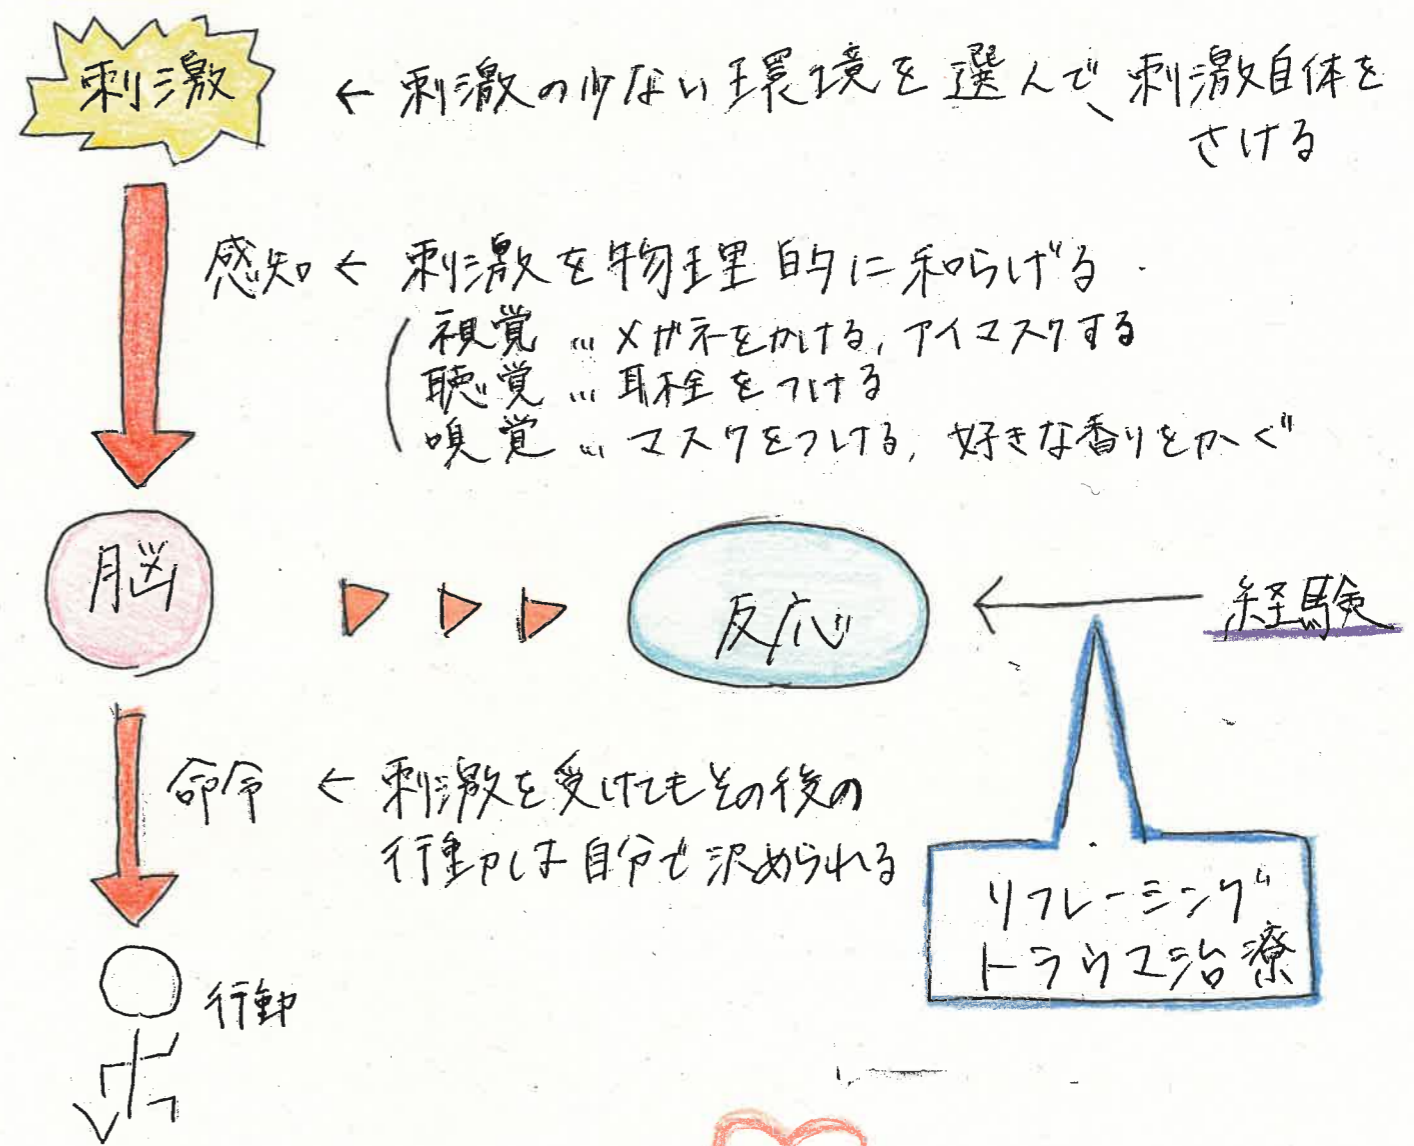 刺激
← 刺激の少ない環境を選んで、刺激自体を
さける
感知 ← 刺激を物理的に和らげる
視覚 … メガネをかける, アイマスクする
聴覚 … 耳栓をつける
嗅覚 … マスクをつける, 好きな香りをかぐ
脳
反応
← 経験
命令 ← 刺激を受けてもその後の
行動は自分で決められる
リフレーミング
トラウマ治療
行動